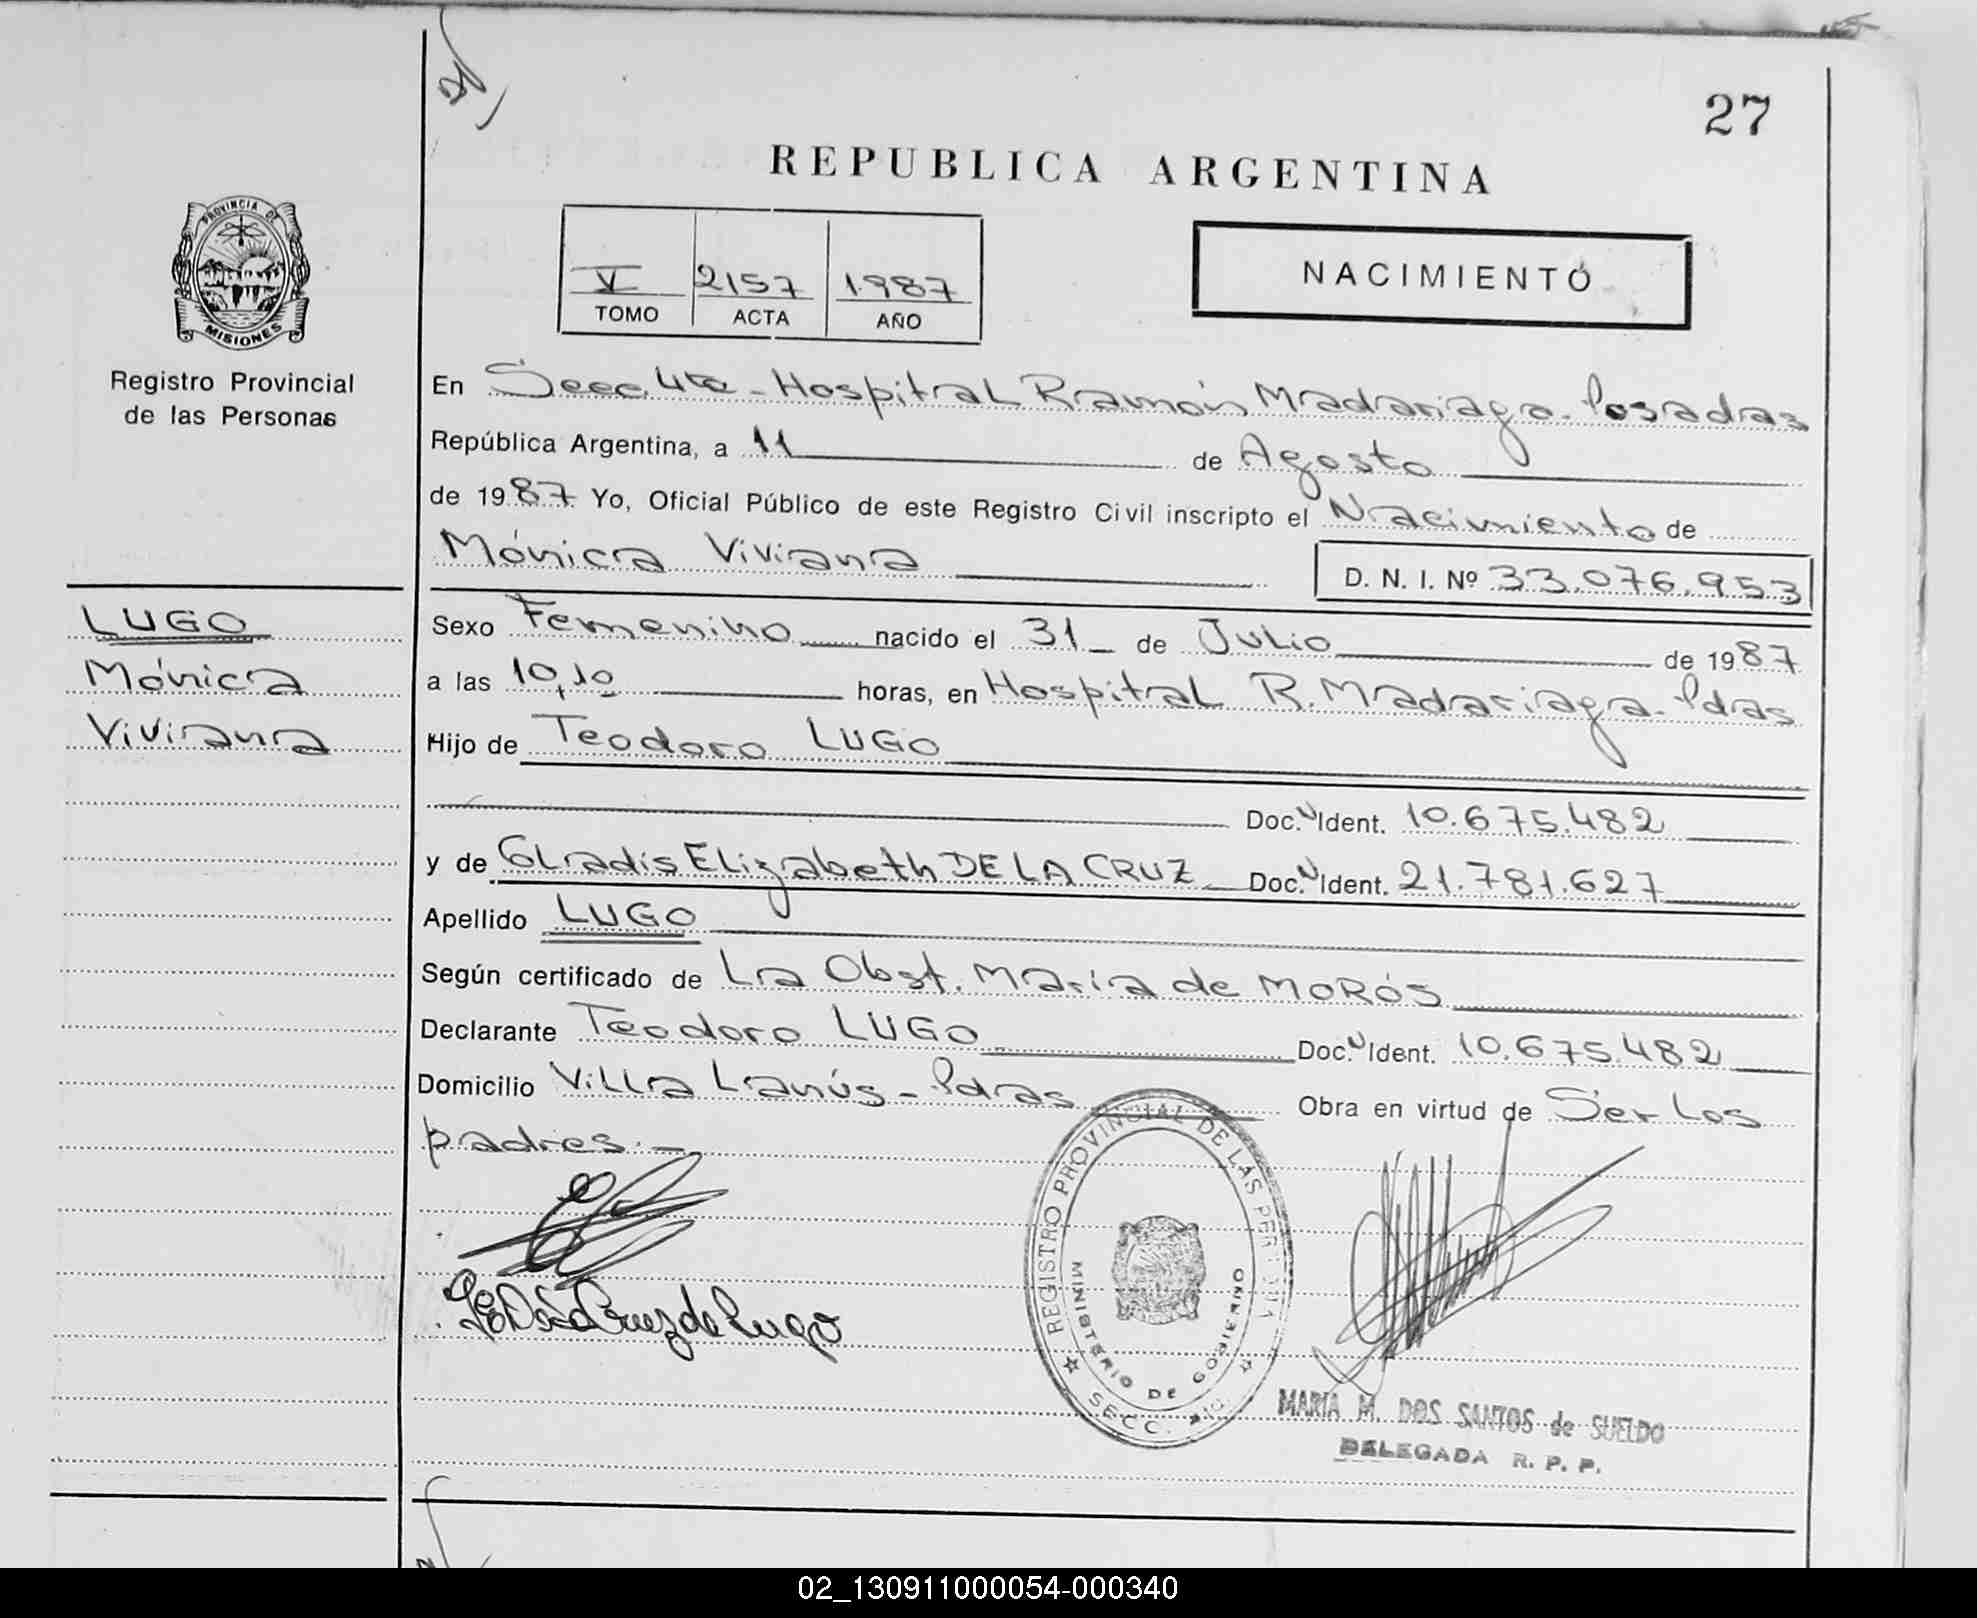 27
REPUBLICA ARGENTINA
PROVINCIA DE
MISIONES
Registro Provincial
de las Personas
V 2157 1987
TOMO ACTA AÑO
NACIMIENTO
En Secc 4ta - Hospital Ramón Madariaga - Posadas
República Argentina, a 11 de Agosto
de 1987 Yo, Oficial Público de este Registro Civil inscripto el Nacimiento de
Mónica Viviana
D. N. I. Nº 33.076.953
LUGO
Mónica
Viviana
Sexo Femenino nacido el 31 de Julio de 1987
a las 10,10 horas, en Hospital R. Madariaga - Pdas
Hijo de Teodoro LUGO
Doc. Ident. 10.675.482
y de GLadis Elizabeth DE LA CRUZ Doc. Ident. 21.781.627
Apellido LUGO
Según certificado de La Obst. María de MORÓS
Declarante Teodoro LUGO Doc. Ident. 10.675.482
Domicilio Villa Lanús - Pdas Obra en virtud de Ser Los
padres. -
Cruz de Lugo
REGISTRO PROVINCIAL DE LAS PERSONAS
MINISTERIO DE GOBIERNO
SECC.
MARIA M. DOS SANTOS de SUELDO
DELEGADA R. P. P.
02_130911000054-000340